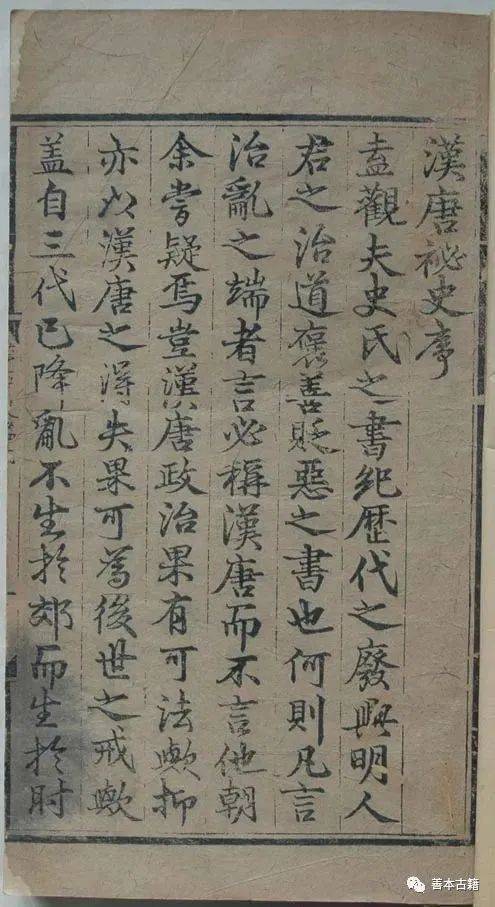 漢唐祕史序
盍觀夫史氏之書紀歴代之廢興明人
君之治道褒善貶惡之書也何則凡言
治亂之端者言必稱漢唐而不言他朝
余嘗疑焉豈漢唐政治果有可法歟抑
亦以漢唐之得失果可為後世之戒歟
盖自三代已降亂不生於郊而生於肘
善本古籍